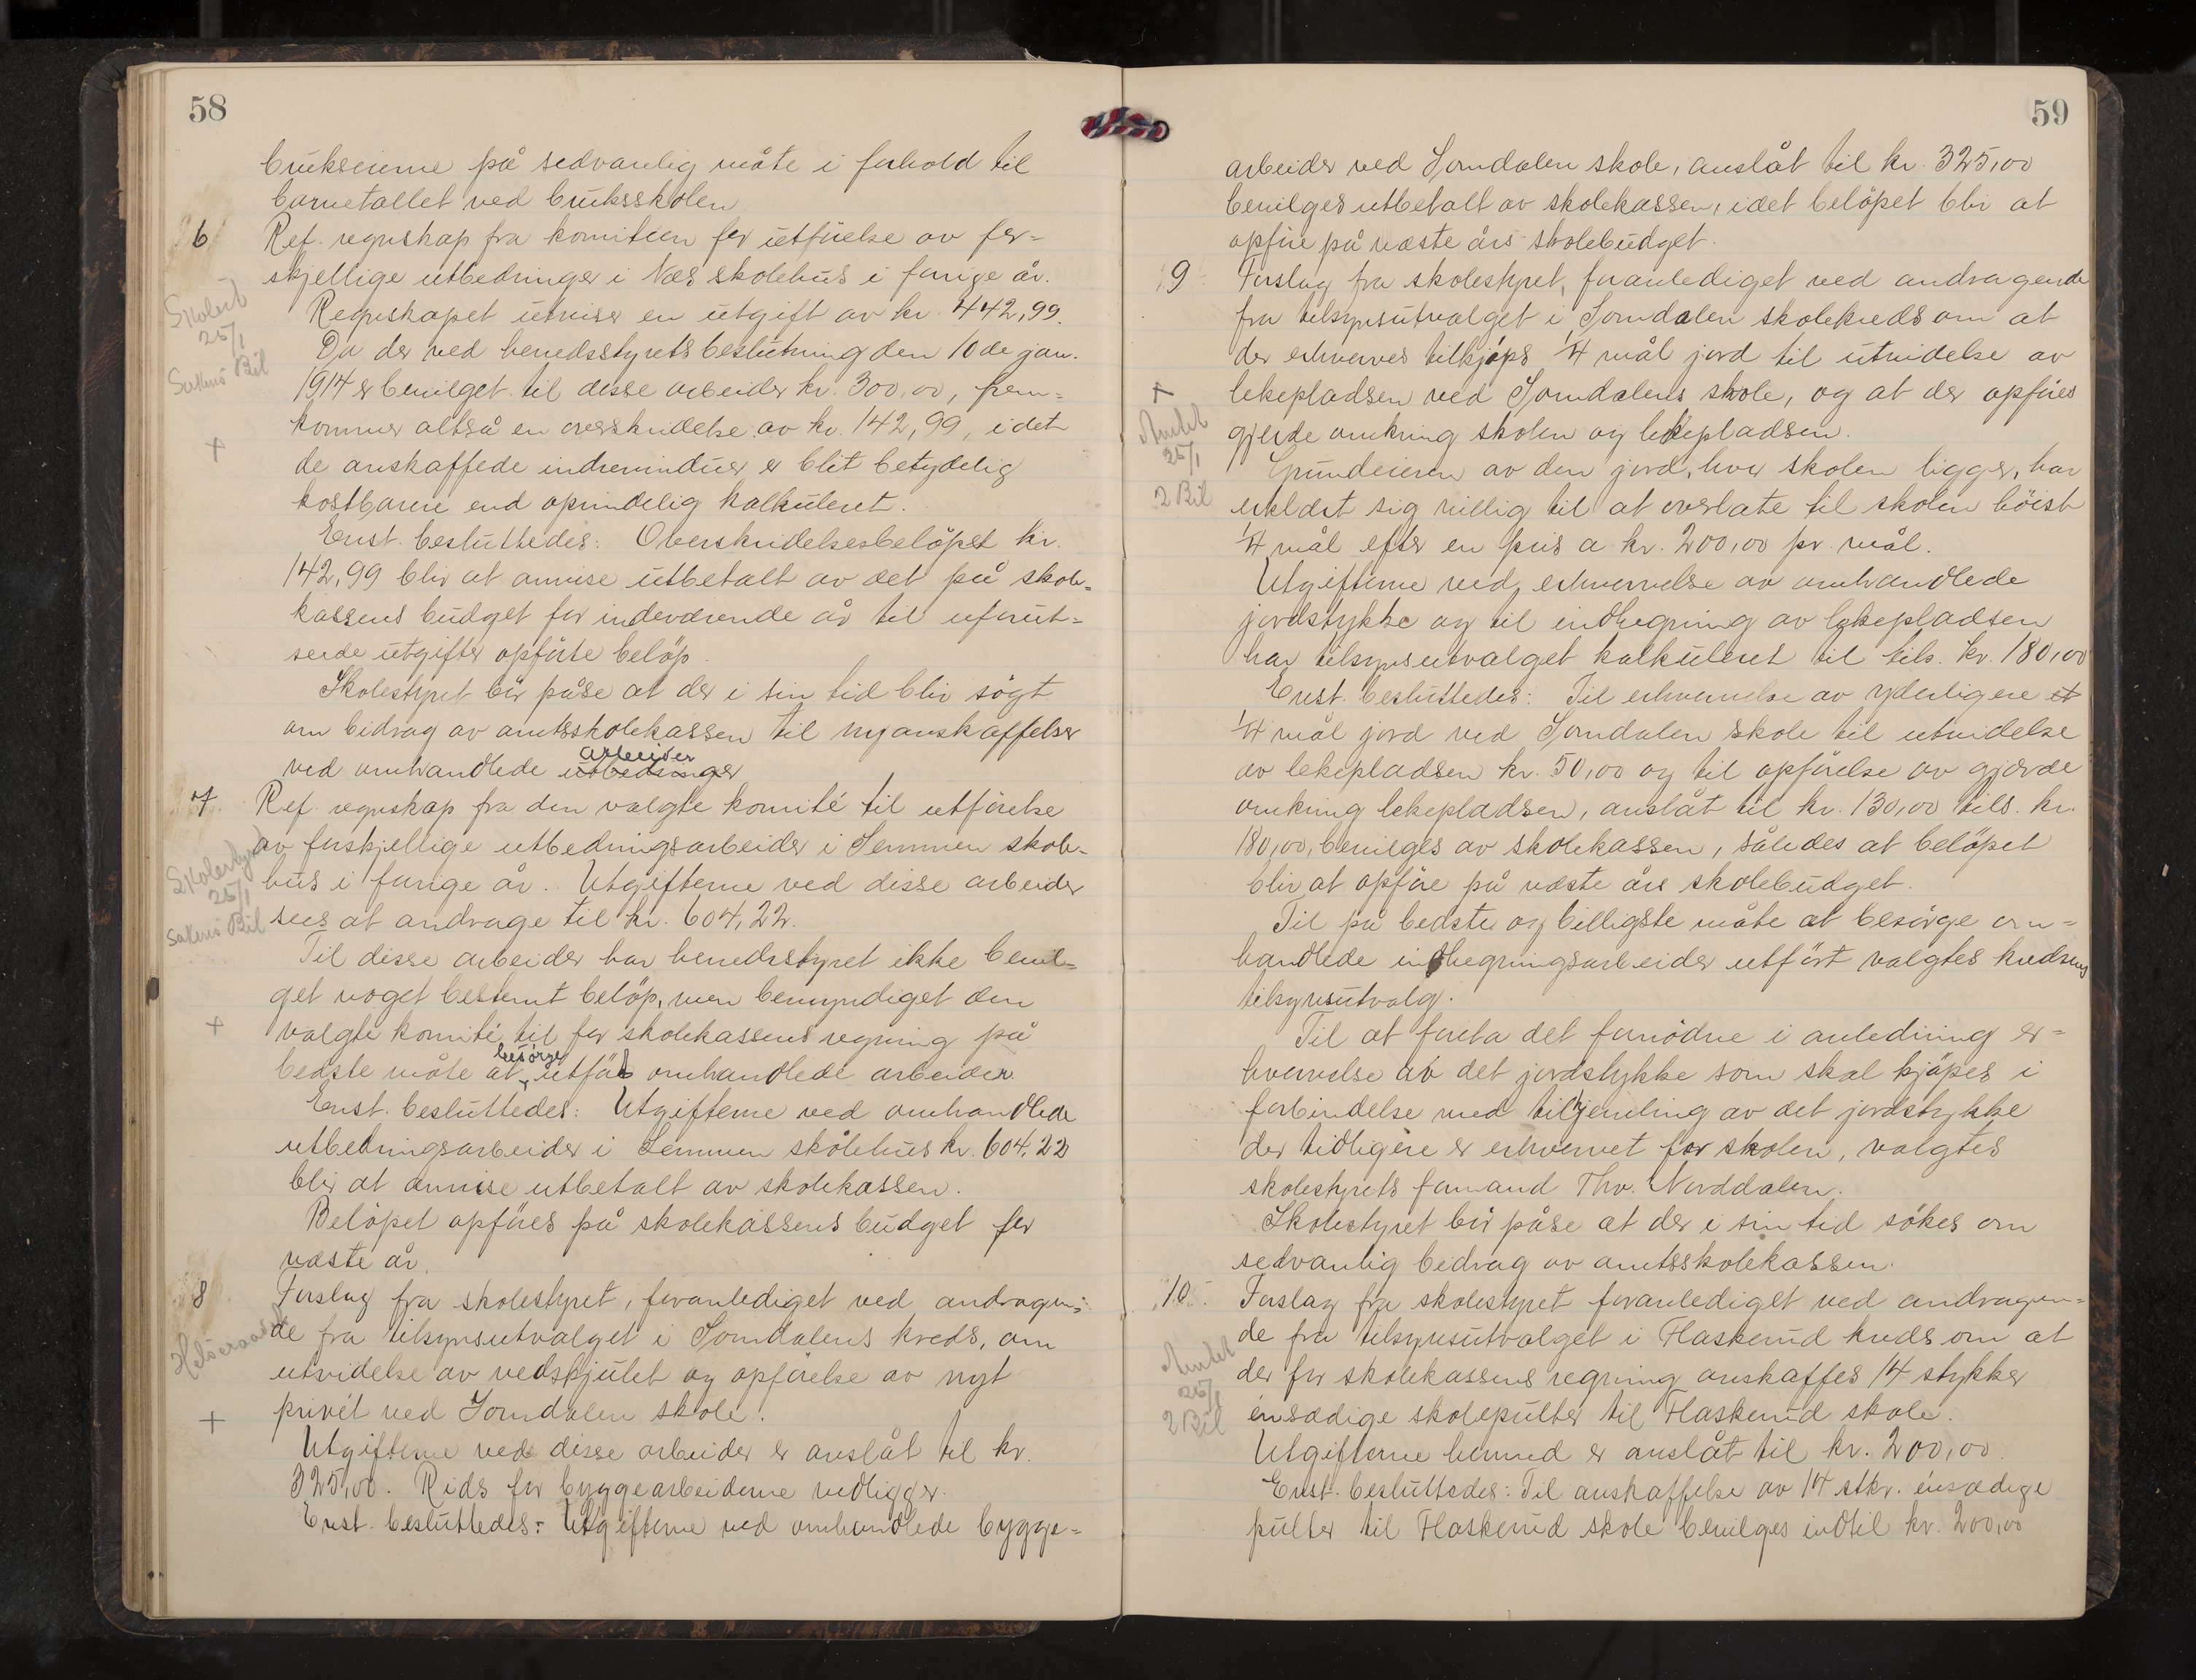 58
brukseierne på sedvanlig måte i forhold til
barnetallet ved bruksskolen
6 Ref. regnskap fra komiteen for utførelse av for-
skjellige utbedringer i Næs skolehus i forrige år.
Regnskapet utviser en utgift av kr. 442,99.
Da der ved herredsstyrets beslutning den 10de jan.
1914 er bevilget til disse arbeider kr. 300,00, frem-
kommer altså en overskridelse av kr. 142,99, idet
de anskaffede indrevinduer er blit betydelig
kostbarere end oprindelig kalkuleret.
Enst. besluttedes: Overskridelsesbeløpet kr.
142,99 blir at anvise utbetalt av det på skole-
kassens budget for indeværende år til uforut-
seede utgifter opførte beløp.
Skolestyret bør påse at der i sin tid blir søgt
om bidrag av amtsskolekassen til nyanskaffelser
ved omhandlede utbedringer arbeider
7. Ref. regnskap fra den valgte komité til utførelse
av forskjellige utbedringsarbeider i Lemmen skole-
hus i forrige år. Utgifterne ved disse arbeider
sees at andrage til kr. 604,22.
Til disse arbeider har herredsstyret ikke bevil-
get noget bestemt beløp, men bemyndiget den
valgte komité til for skolekassens regning på
bedste måte at besørge utført omhandlede arbeider.
Enst. besluttedes: Utgifterne ved omhandlede
utbedringsarbeider i Lemmen skolehus kr. 604,22
blir at anvise utbetalt av skolekassen.
Beløpet opføres på skolekassens budget for
næste år.
8 Forslag fra skolestyret, foranlediget ved andragen-
de fra tilsynsutvalget i Jomdalens kreds, om
utvidelse av vedskjulet og opførelse av nyt
privét ved Jomdalen skole.
Utgifterne ved disse arbeider er anslåt til kr.
325,00. Rids for byggearbeiderne vedligger.
Enst. besluttedes: Utgifterne ved omhandlede bygge-
Skolest
25/1
Sakens Bil
+
Skolestyret
25/1
Sakens Bil
+
Helseraadet
+
59
arbeider ved Jomdalen skole, anslåt til kr. 325,00
bevilges utbetalt av skolekassen, idet beløpet blir at
opføre på næste års skolebudget.
9 Forslag fra skolestyret, foranlediget ved andragende
fra tilsynsutvalget i Jomdalen skolekreds om at
der erhverves tilkjøps 1/4 mål jord til utvidelse av
lekepladsen ved Jomdalens skole, og at der opføres
gjerde omkring skolen og lekepladsen.
Grundeieren av den jord, hvor skolen ligger, har
erklært sig villig til at overlate til skolen høist
1/4 mål efter en pris a kr. 200,00 pr. mål.
Utgifterne ved erhvervelse av omhandlede
jordstykke og til indhegning av lekepladsen
har tilsynsutvalget kalkuleret til tils. kr. 180,00
Enst. besluttedes: Til erhvervelse av yderligere et
1/4 mål jord ved Jomdalen skole til utvidelse
av lekepladsen kr. 50,00 og til opførelse av gjærde
omkring lekepladsen, anslåt til kr. 130,00 tils. kr.
180,00, bevilges av skolekassen, således at beløpet
blir at opføre på næste års skolebudget.
Til på bedste og billigste måte at besørge om-
handlede indhegningsarbeider utført valgtes kredsens
tilsynsutvalg.
Til at foreta det fornødne i anledning er-
hvervelse av det jordstykke som skal kjøpes i
forbindelse med tilhjemling av det jordstykke
der tidligere er erhvervet for skolen, valgtes
skolestyrets formand Thv. Norddalen.
Skolestyret bør påse at der i sin tid søkes om
sedvanlig bidrag av amtsskolekassen.
10. Forslag fra skolestyret foranlediget ved andragen-
de fra tilsynsutvalget i Flaskerud kreds om at
der for skolekassens regning anskaffes 14 stykker
énsædige skolepulter til Flaskerud skole.
Utgifterne herved er anslåt til kr. 200,00.
Enst. besluttedes: Til anskaffelse av 14 stkr. énsædige
pulter til Flaskerud skole bevilges indtil kr. 200,00
+
Amtet
25/1
2 Bil
Amtet
25/1
2 Bil